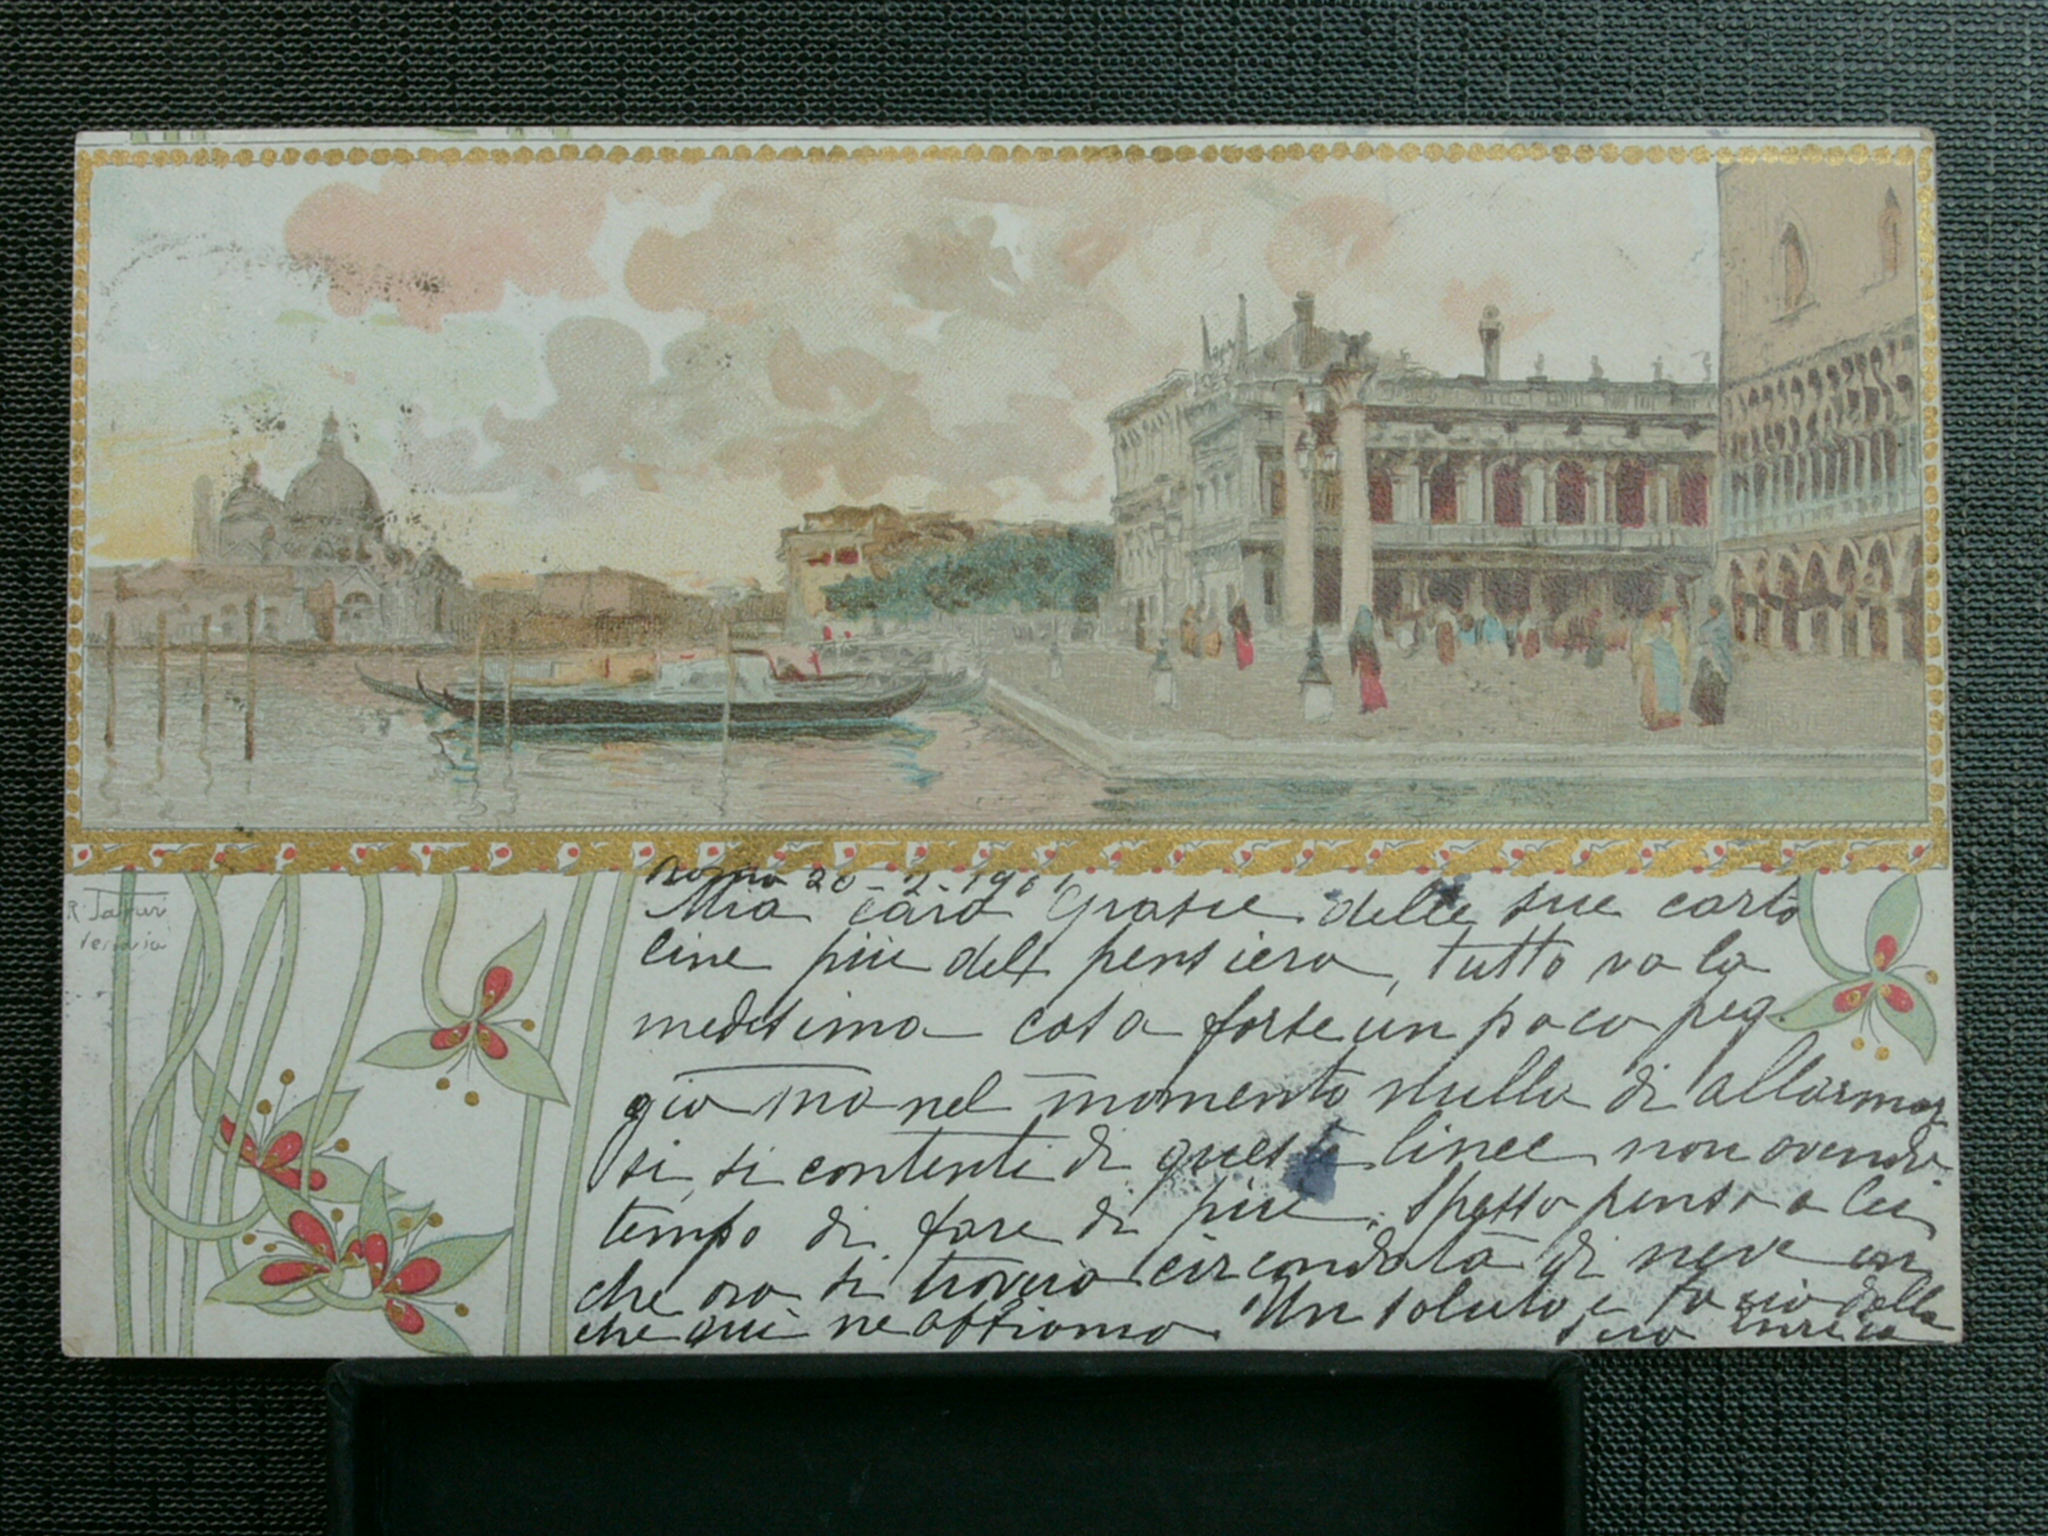 R. Tafuri
Venezia
Roma 20-2-1901
Mia cara Grasie delle sue carto
line più del pensiero, tutto va la
medesima cosa forse un poco peg.
gio ma nel momento nulla di allarmar
si, si contenti di queste linee non avendo
tempo di fare di più. Spesso penso a Lei
che ora si troverà circondata di neve an
che qui ne abbiamo. Un saluto e bacio dalla
sua Enrica